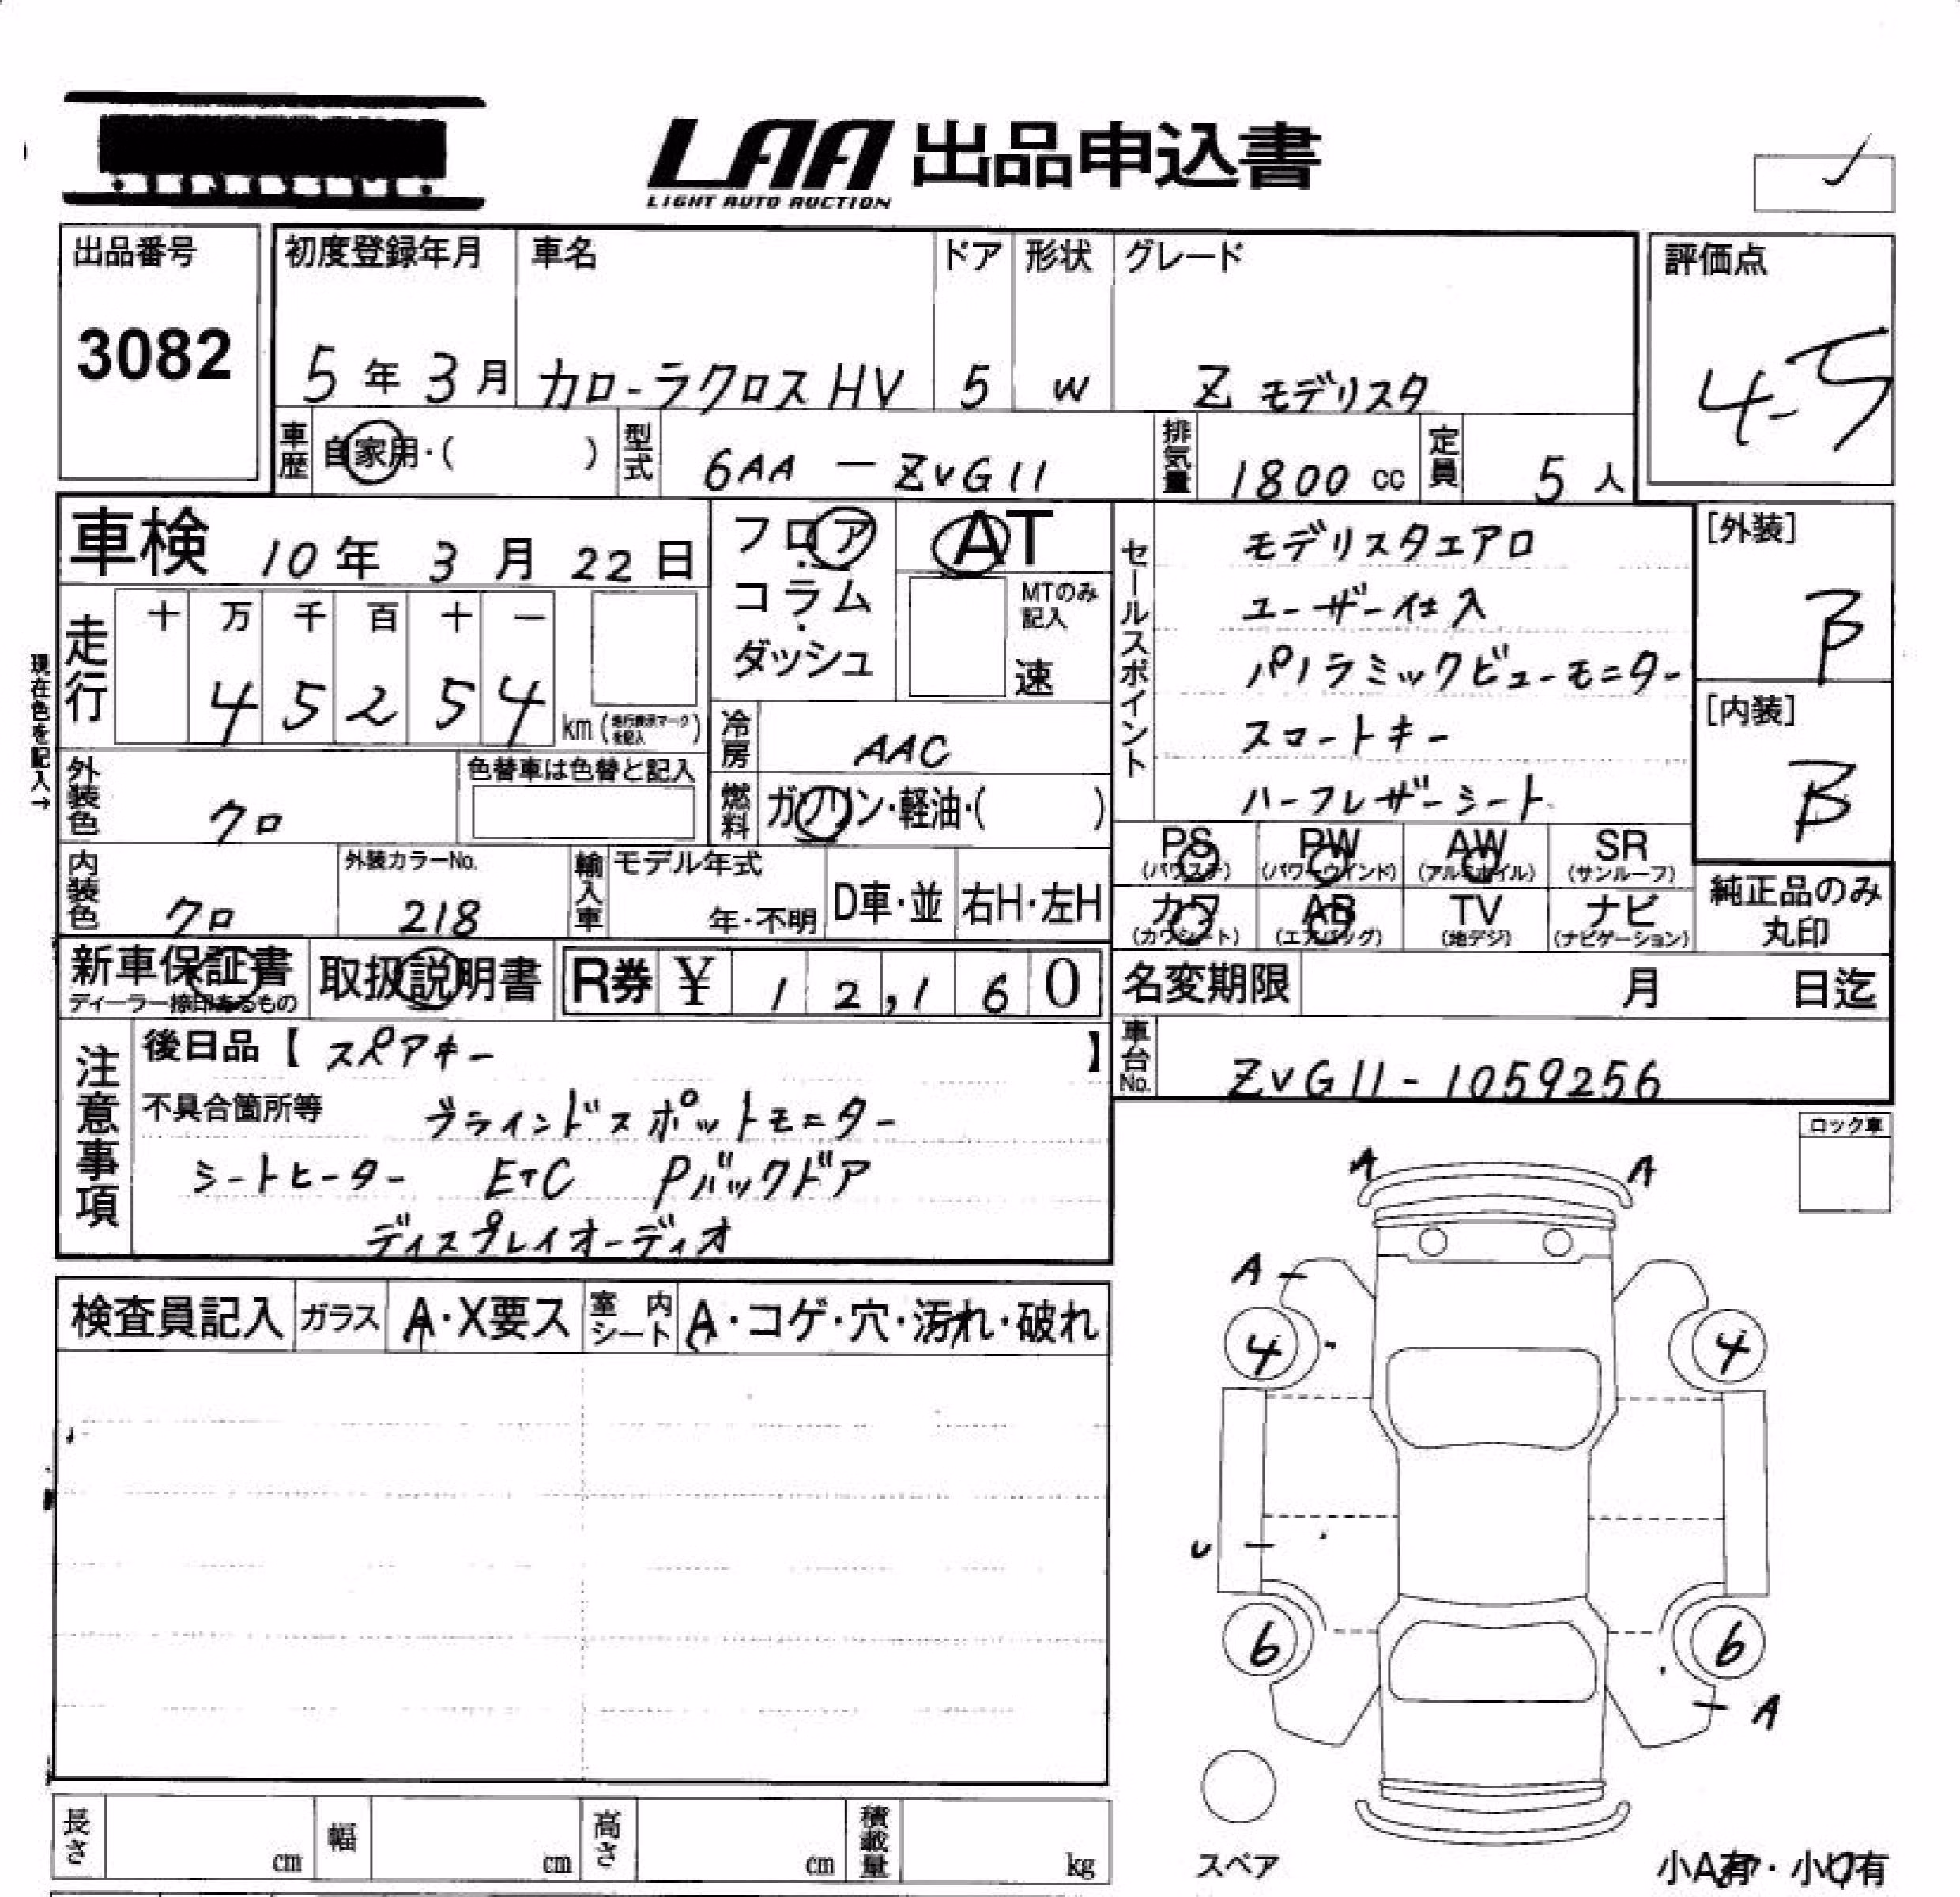 LAA 出品申込書
LIGHT AUTO AUCTION
出品番号
3082
初度登録年月
5年3月
車名
カローラクロスHV
ドア
5
形状
W
グレード
Z モデリスタ
評価点
4.5
車歴 自家用・( )
型式 6AA-ZVG11
排気量 1800 cc
定員 5人
車検 10年3月22日
フロア・コラム・ダッシュ
AT
MTのみ記入
速
走行
十 万 千 百 十 一
4 5 2 5 4
km (走行表示マークを記入)
現在色を記入→
冷房 AAC
燃料 ガソリン・軽油・( )
外装色 クロ
色替車は色替と記入
内装色 クロ
外装カラーNo.
218
輸入車
モデル年式
年・不明
D車・並
右H・左H
セールスポイント
モデリスタエアロ
ユーザー仕入
パノラミックビューモニター
スコートキー
ハーフレザーシート
[外装]
B
[内装]
B
PS (パワステ)
PW (パワーウインド)
AW (アルミホイル)
SR (サンルーフ)
カワ (カワシート)
AB (エアバッグ)
TV (地デジ)
ナビ (ナビゲーション)
純正品のみ丸印
新車保証書
ディーラー捺印あるもの
取扱説明書
R券 ¥ 12,160
名変期限 月 日迄
車台No. ZVG11-1059256
注意事項
後日品【スペアキー】
不具合箇所等 ブラインドスポットモニター
シートヒーター ETC Pバックドア
ディスプレイオーディオ
ロック車
検査員記入
ガラス A・X要ス
室内シート A・コゲ・穴・汚れ・破れ
A A
A
4 4
U
6 6
A
スペア
小A有・小U有
長さ cm
幅 cm
高さ cm
積載量 kg